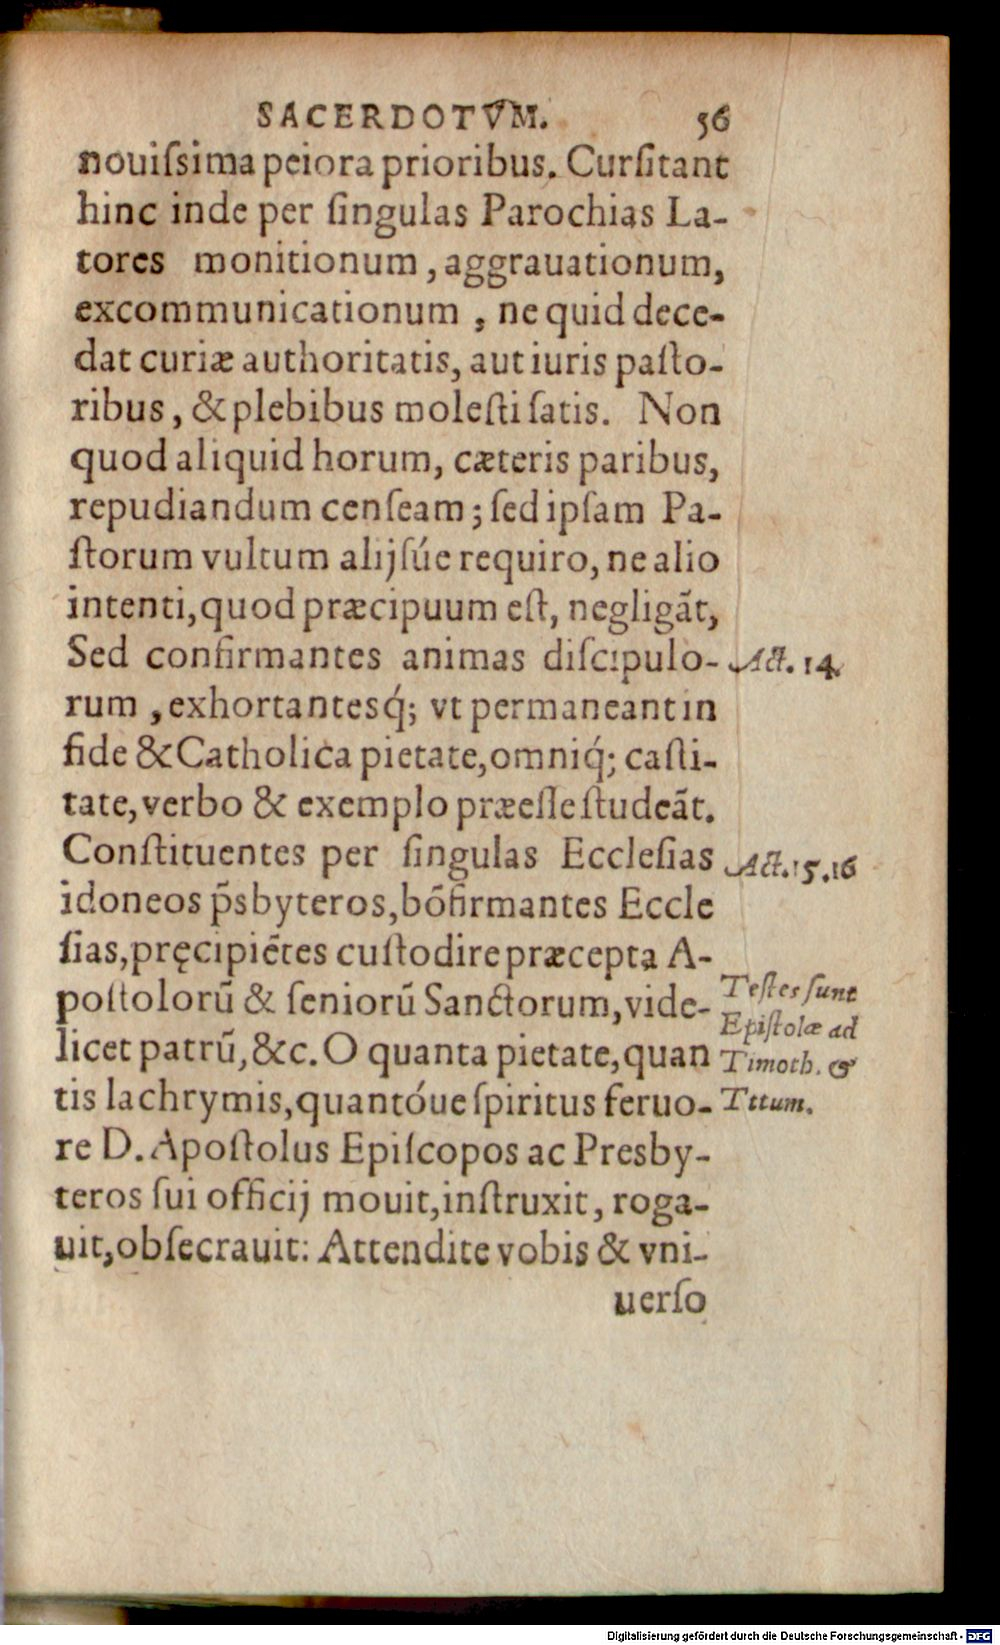 SACERDOTVM. 56
nouiſsima peiora prioribus. Curſitant
hinc inde per ſingulas Parochias La-
tores monitionum, aggrauationum,
excommunicationum, ne quid dece-
dat curiæ authoritatis, aut iuris paſto-
ribus, & plebibus moleſti ſatis. Non
quod aliquid horum, cæteris paribus,
repudiandum cenſeam; ſed ipſam Pa-
ſtorum vultum alijſúe requiro, ne alio
intenti, quod præcipuum eſt, negligāt,
Sed confirmantes animas diſcipulo- Act. 14.
rum, exhortantesq́; vt permaneant in
fide & Catholica pietate, omniq́; caſti-
tate, verbo & exemplo præeſſe ſtudeāt.
Conſtituentes per ſingulas Eccleſias Act. 15. 16
idoneos p̄sbyteros, bōfirmantes Eccle
ſias, pręcipiētes cuſtodire præcepta A-
poſtolorū & ſeniorū Sanctorum, vide- Teſtes ſunt
licet patrū, &c. O quanta pietate, quan Epiſtolæ ad
tis lachrymis, quantóue ſpiritus feruo- Timoth. &
re D. Apoſtolus Epiſcopos ac Presby- Titum.
teros ſui officij mouit, inſtruxit, roga-
uit, obſecrauit: Attendite vobis & vni-
uerſo
Digitalisierung gefördert durch die Deutsche Forschungsgemeinschaft - DFG